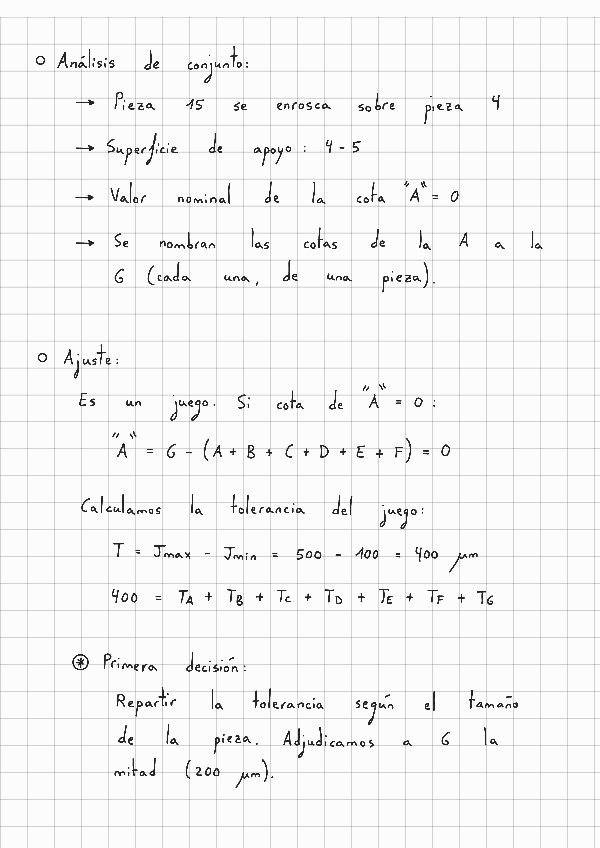 ○ Análisis de conjunto:
→ Pieza 15 se enrosca sobre pieza 4
→ Superficie de apoyo: 4 - 5
→ Valor nominal de la cota "A" = 0
→ Se nombran las cotas de la A a la
G (cada una, de una pieza).
○ Ajuste:
Es un juego. Si cota de "A" = 0:
"A" = G - (A + B + C + D + E + F) = 0
Calculamos la tolerancia del juego:
T = Jmax - Jmin = 500 - 100 = 400 μm
400 = TA + TB + Tc + TD + TE + TF + TG
⊛ Primera decisión:
Repartir la tolerancia según el tamaño
de la pieza. Adjudicamos a G la
mitad (200 μm).